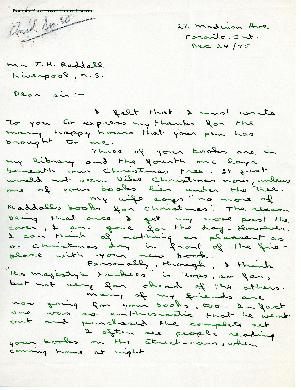 27 Madison Ave.
Toronto, Ont.
Dec 24/45
Mr. T. H. Raddall
Liverpool, N.S.
Dear sir:-
I felt that I must write
to you to express my thanks for the
many happy hours that your pen has
brought to me.
Three of your books are in
my library and the fourth one lays
beneath our Christmas tree. It just
would not seem like Christmas now unless
one of your books lies under the tree.
My wife says "no more of
Raddalls books for Christmas". The reason
being that once I get my nose past the
cover, I am gone for the day. However,
I can think of nothing as pleasant as
a Christmas day in front of the fire-
place with your new book.
Personally, though, I think
"His Majesty's Yankees" is tops, so far,
but not very far ahead of the others.
Many of my friends are
now going for your books, too. In fact
one was so enthusiastic that he went
out and purchased the complete set
I often see people reading
your books on the street-cars, when
coming home at night